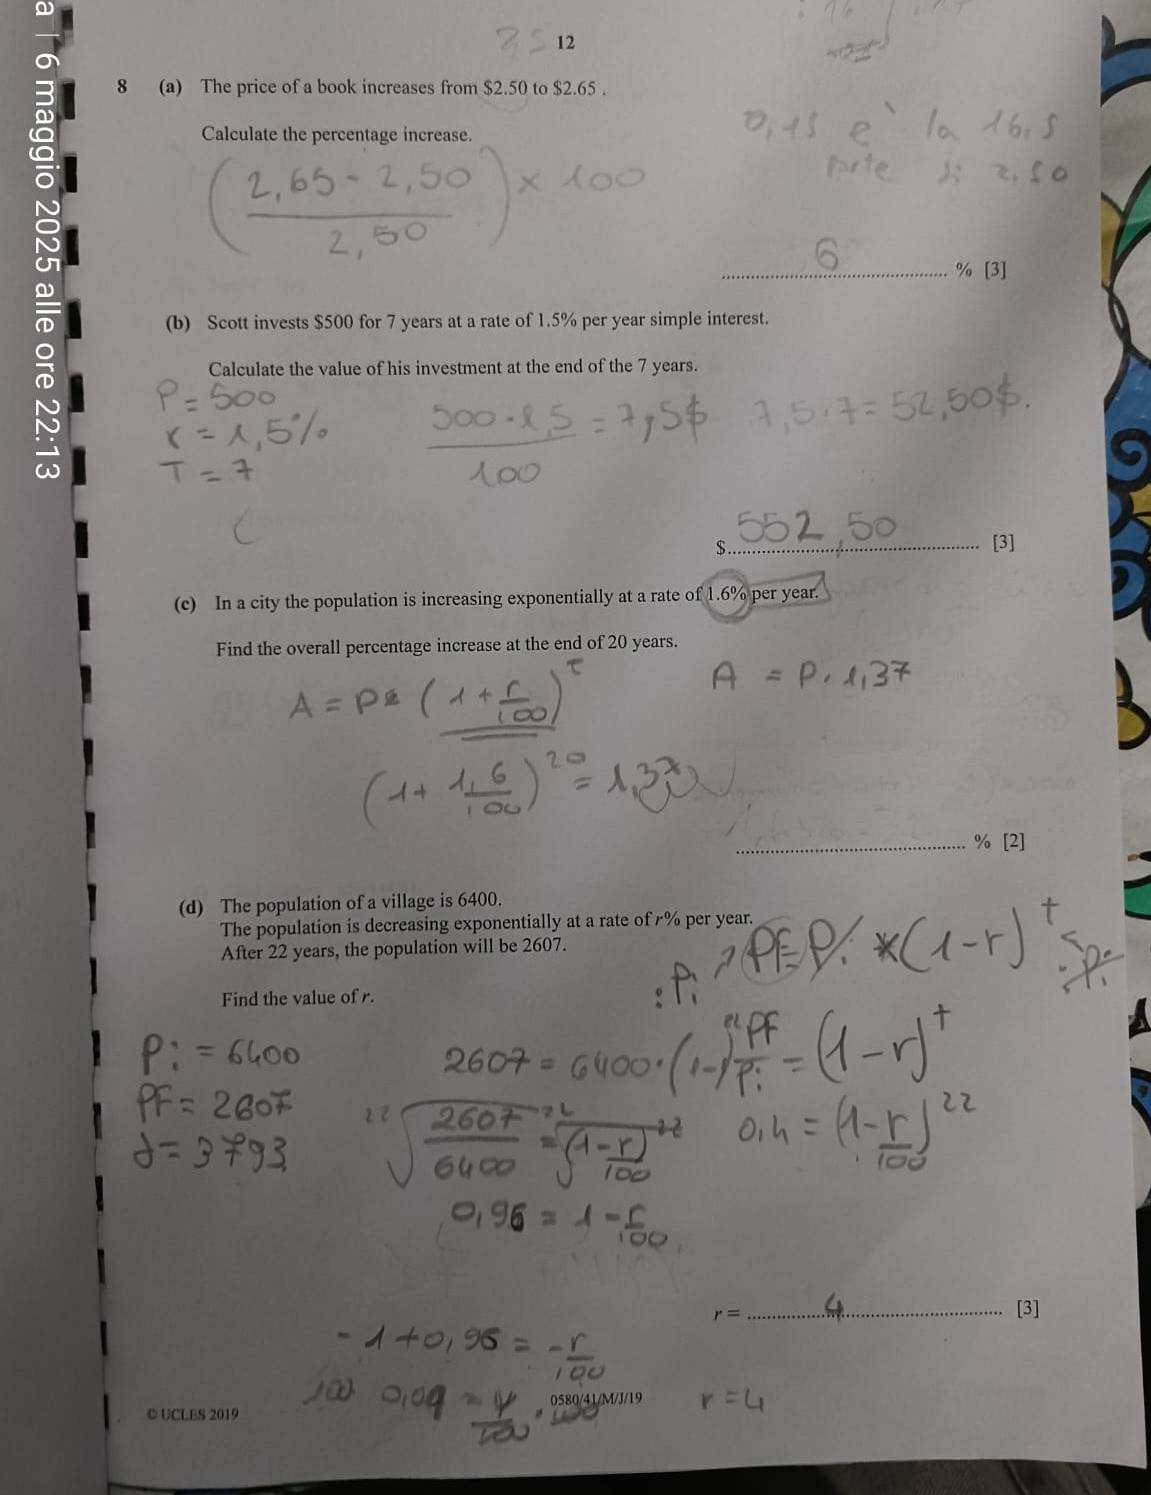 a | 6 maggio 2025 alle ore 22:13
12
8 (a) The price of a book increases from $2.50 to $2.65 .
Calculate the percentage increase.
0,15 è la 16,5
parte di 2,50
(2,65 - 2,50 / 2,50) × 100
6 % [3]
(b) Scott invests $500 for 7 years at a rate of 1.5% per year simple interest.
Calculate the value of his investment at the end of the 7 years.
P = 500
r = 1,5%
T = 7
500 · 1,5 / 100 = 7,5$ 7,5 · 7 = 52,50$.
$ 552,50 [3]
(c) In a city the population is increasing exponentially at a rate of 1.6% per year.
Find the overall percentage increase at the end of 20 years.
A = P (1 + r/100)^t
A = P · 1,37
(1 + 1,6/100)^20 = 1,37
% [2]
(d) The population of a village is 6400.
The population is decreasing exponentially at a rate of r% per year.
After 22 years, the population will be 2607.
Find the value of r.
:Pi PF = Pi * (1-r)^t :Pi
Pi = 6400
PF = 2607
d = 3793
2607 = 6400 · (1-r)^22
PF/Pi = (1-r)^t
22√2607/6400 = 22√(1-r/100)^22
0,4 = (1-r/100)^22
0,96 = 1 - r/100
r = 4 [3]
-1+0,96 = -r/100
100 0,04 = r/100 · 100
r = 4
© UCLES 2019
0580/41/M/J/19